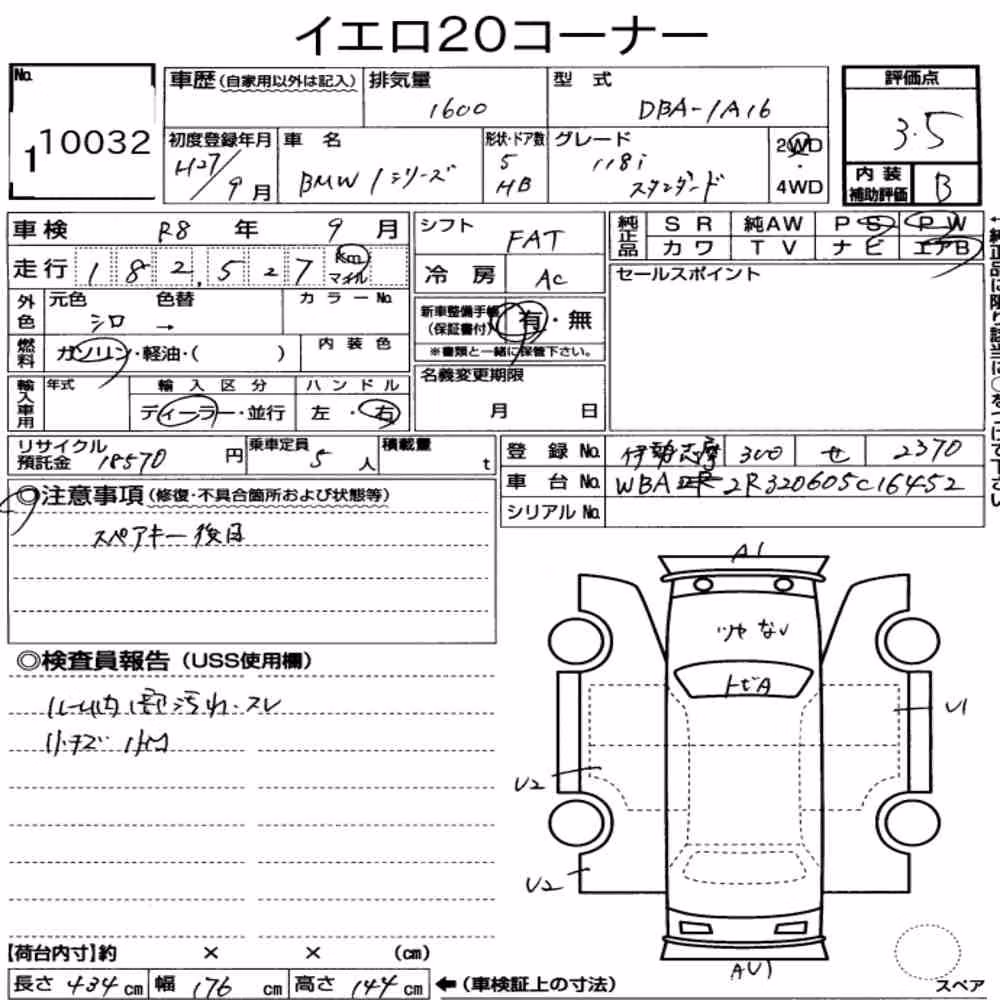 イエロ20コーナー
No.
1 10032
車歴 (自家用以外は記入)
排気量
1600
型式
DBA-1A16
評価点
3.5
初度登録年月
H27/9月
車名
BMW 1シリーズ
形状・ドア数
5
HB
グレード
118i
スタンダード
2WD
・
4WD
内装
補助評価
B
車検 R8 年 9 月
走行 182,527 km
マイル
外色
元色 色替
シロ →
カラーNo.
燃料
ガソリン・軽油・( )
内装色
輸入車用
年式
輸入区分
ディーラー・並行
ハンドル
左・右
シフト
FAT
冷房
AC
新車整備手帳
(保証書付)
有・無
※書類と一緒に保管下さい。
名義変更期限
月 日
純正品
SR 純AW PS PW
カワ TV ナビ エアB
セールスポイント
リサイクル
預託金 18570 円
乗車定員 5 人
積載量 t
登録No. 伊勢志摩 300 せ 2370
車台No. WBA 2R320605C16452
シリアルNo.
◎注意事項 (修復・不具合箇所および状態等)
スペアキー後日
◎検査員報告 (USS使用欄)
汚れ・スレ
小キズ 小凹
A1
ツヤなし
トビA
U1
U2
U2
AU1
【荷台内寸】約 × × (cm)
長さ 434 cm 幅 176 cm 高さ 144 cm ←(車検証上の寸法)
スペア